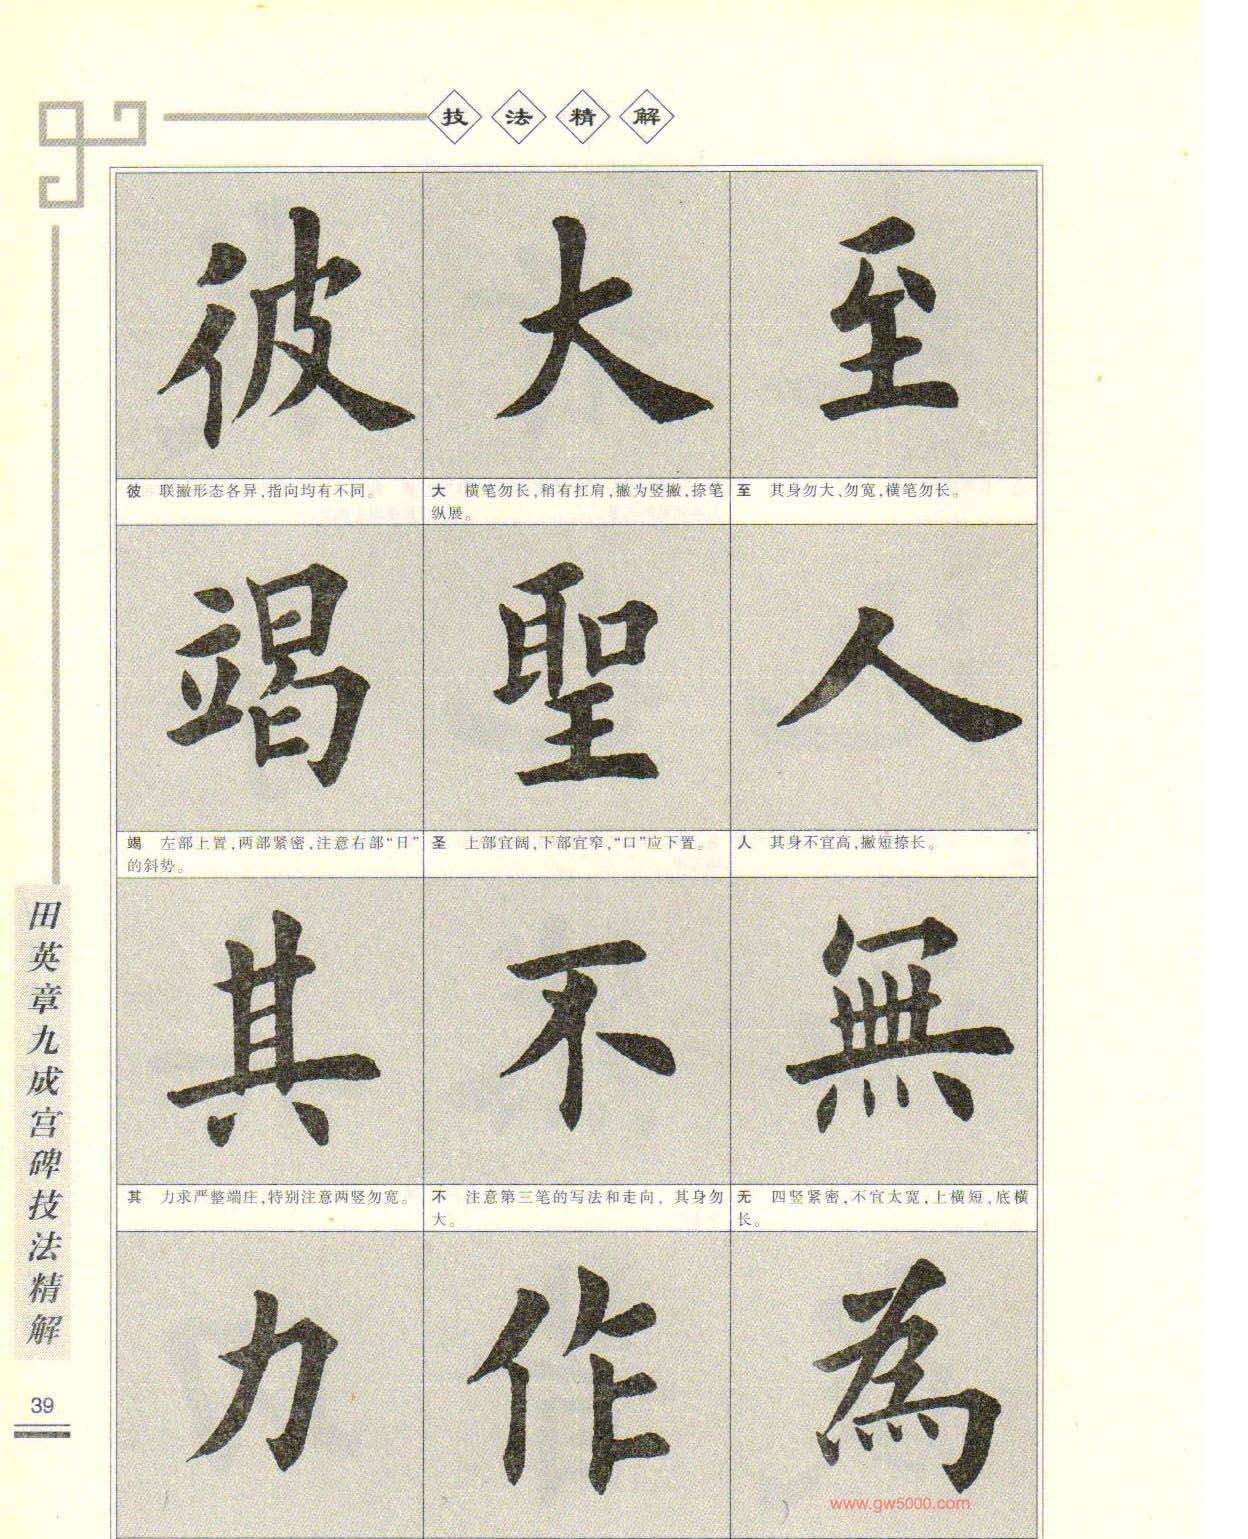 技法精解
彼 大 至
彼 联撇形态各异,指向均有不同。
大 横笔勿长,稍有扛肩,撇为竖撇,捺笔
纵展。
至 其身勿大、勿宽,横笔勿长。
竭 聖 人
竭 左部上置,两部紧密,注意右部“日”
的斜势。
圣 上部宜阔,下部宜窄,“口”应下置。
人 其身不宜高,撇短捺长。
其 不 無
其 力求严整端庄,特别注意两竖勿宽。
不 注意第三笔的写法和走向，其身勿
大。
无 四竖紧密,不宜太宽,上横短,底横
长。
力 作 為
田英章九成宫碑技法精解
39
www.gw5000.com